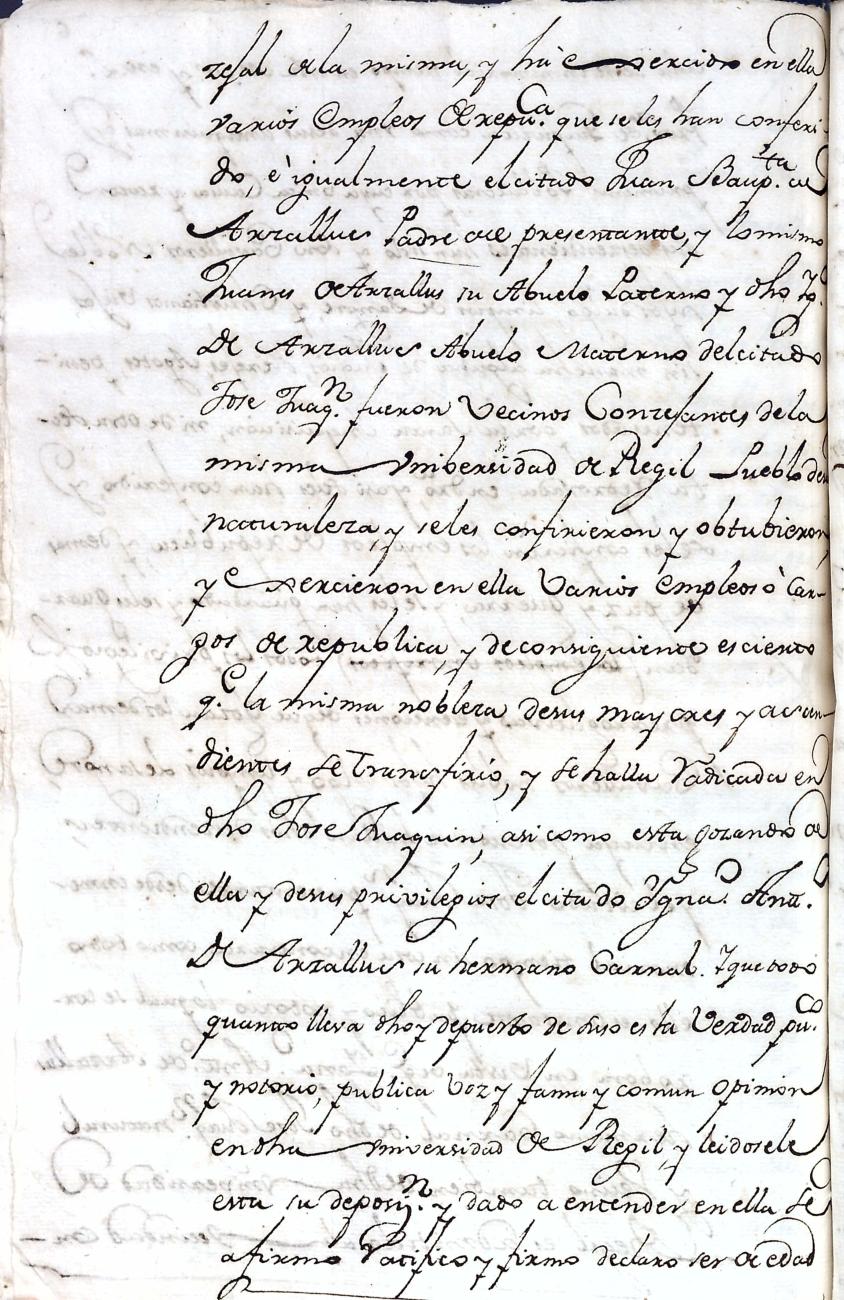 zejal de la misma, y há exercido en ella
varios Empleos de repu.ca que se les han conferi-
do, è igualmente el citado Juan Baup.ta de
Arzallus Padre de el presentante, y lo mismo
Juanes de Arzallus su Abuelo Paterno y dho
de Arzallus Abuelo Materno del citado
Jose Juaq.n fueron Vecinos Conzejantes de la
misma Vniversidad de Regil Pueblo de su
naturaleza, y seles confirieron y obtubieron,
y exercieron en ella Varios empleos ò car-
gos de republica, y de consiguiente es cierto
q.e la misma nobleza de sus mayores y ascen-
dientes se transfirió, y se halla Radicada en
dho Jose Juaquin, asi como esta gozando de
ella y de sus privilegios el citado Ygna.o Antt.o
de Arzallus su hermano Carnal. Y que todo
quanto lleva dho y depuesto de suso es la Verdad pu.co
y notorio, publica voz y fama y comun opinion
en dha Vniversidad de Regil, y leidosele
esta su deposi.n y dado a entender en ella se
afirmo Ratifico y firmo declaro ser de edad